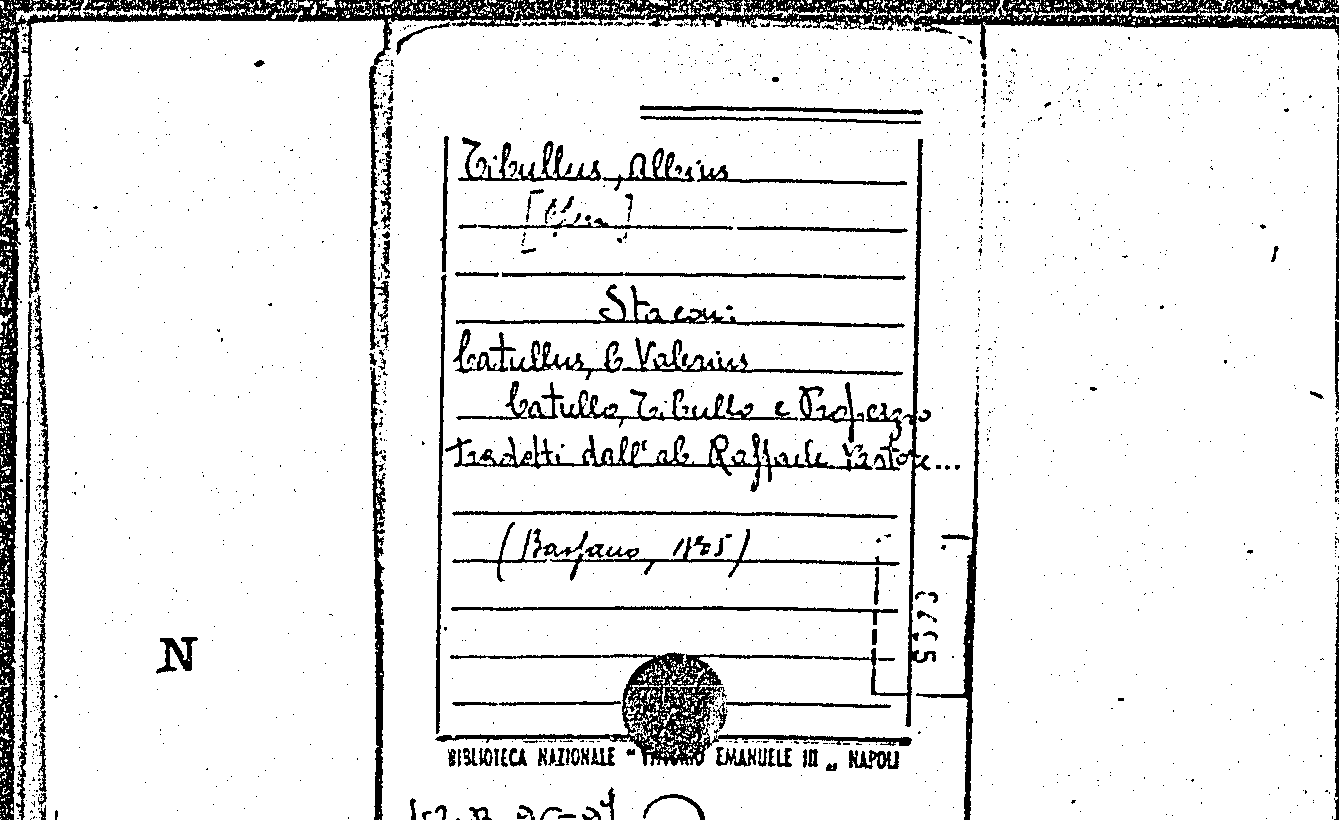 Tibullus, Albius
Catullus, C. Valerius
Catullo, Tibullo e Properzio
tradotti dall'ab Raffaele Pastore...
(Bassano,
5573
N
BIBLIOTECA NAZIONALE " VITTORIO EMANUELE III „ NAPOLI